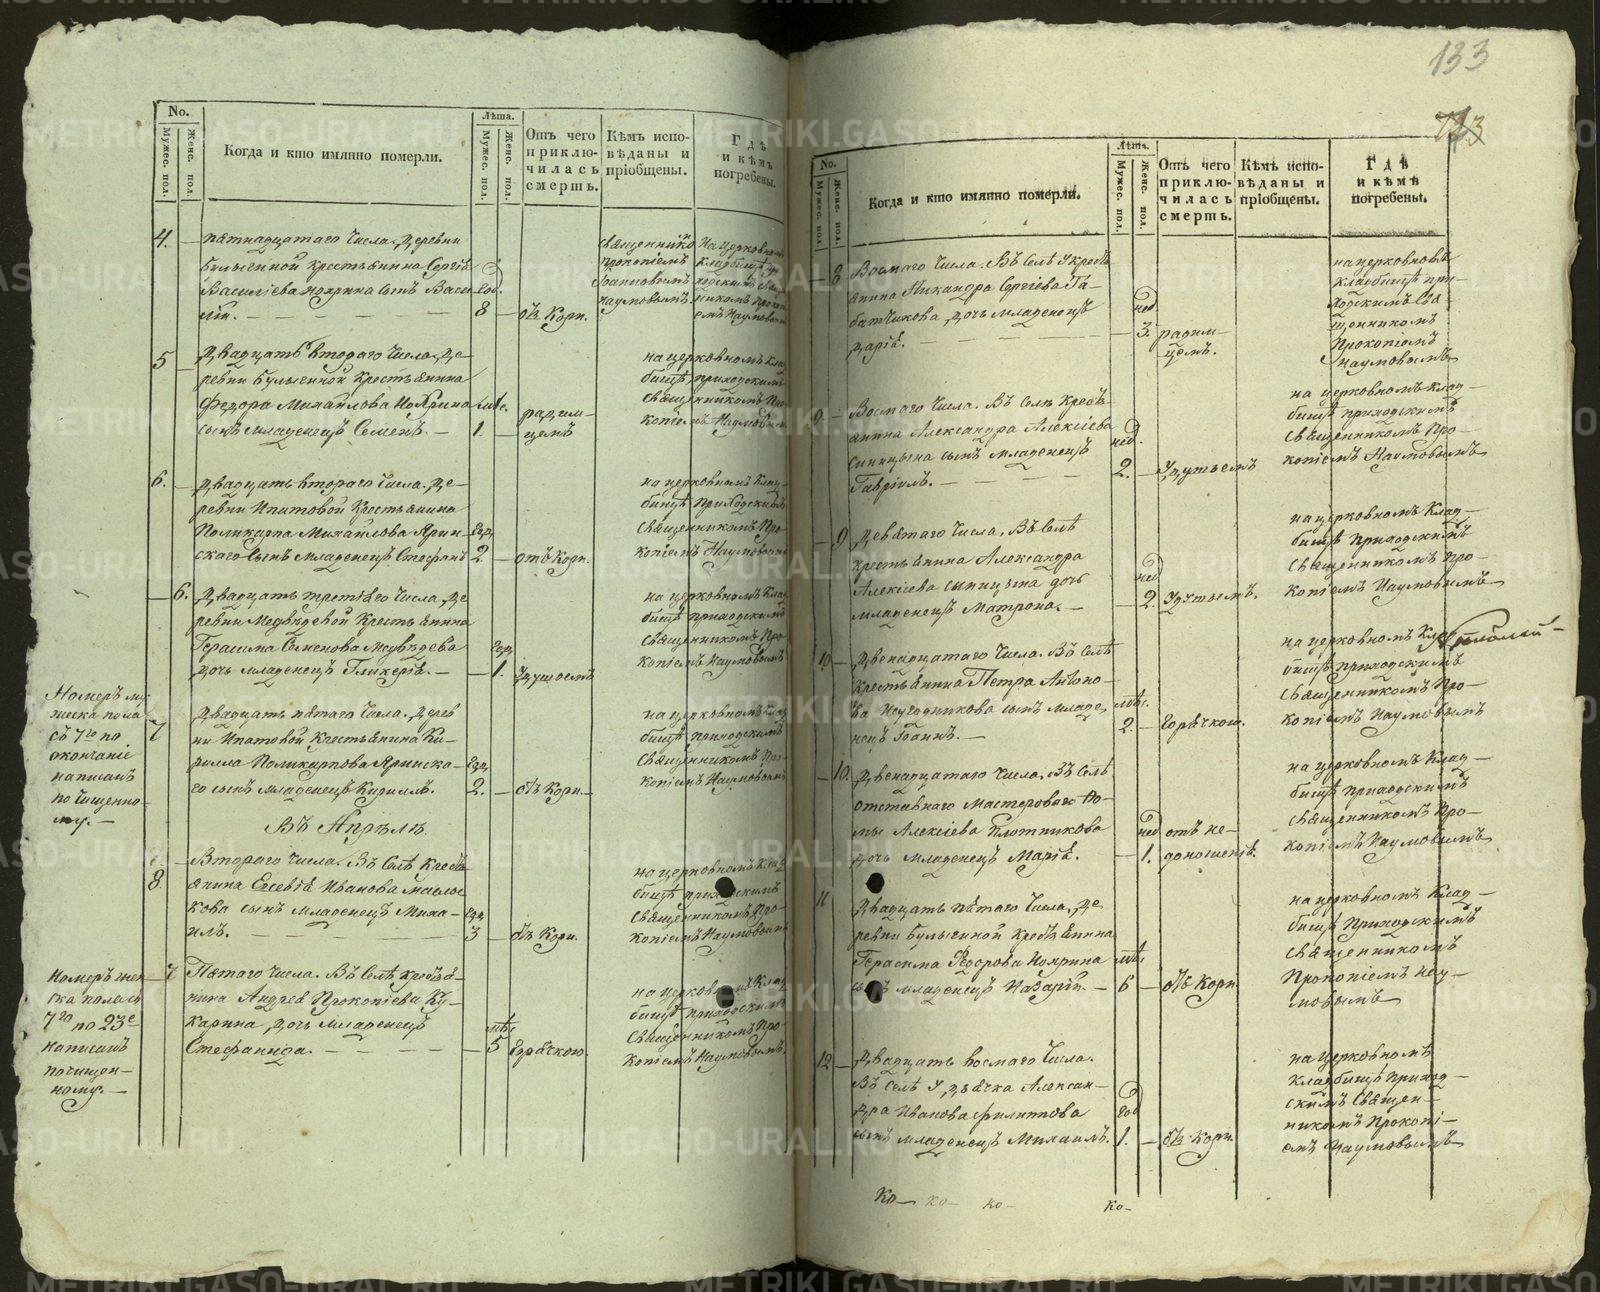 133
No.
Мужес. пол.
Женс. пол.
Когда и кто имянно померли.
Лѣта.
Мужес. пол.
Женс. пол.
Отъ чего
приклю-
чилась
смерть.
Кѣмъ испо-
вѣданы и
пріобщены.
Гдѣ
и кѣмъ
погребены.
4. — пятнадцатаго Числа. Деревни
Крестьянина Сергія
Василіева сынъ
8 — отъ Кори.
Священнико
Прокопіемъ
Наумовымъ
5 — Двадцать втораго Числа. Де-
ревни Крестьянина
Федора Михайлова
сынъ младенецъ Семенъ. —
мѣс.
1 —
родим-
цемъ
на церковномъ Клад
бищѣ приходскимъ
Священникомъ Про
копіемъ Наумовым
6. — Двадцать втораго Числа. Де-
ревни Ипатовой Крестьянина
Поликарпа Михайлова Ярин-
скаго сынъ младенецъ Стефанъ
2 — отъ Кори.
на церковномъ Клад-
бищѣ Приходскимъ
Священникомъ Про
копіемъ Наумовым
— 6. Двадцать третіяго Числа. Де
ревни Медвѣдевой Крестьянина
Герасима Семенова Медвѣдева
дочь младенецъ Гликерія. —
— 1. Удушьемъ
на церковномъ Клад
бищѣ приходскимъ
Священникомъ Про
копіемъ Наумовымъ
Номеръ му
жеска пола
съ 7го по
окончаніе
написанъ
по чищенно-
му. —
7 Двадцать пятаго Числа. Дерев
ни Ипатовой Крестьянина Ки-
рилла Поликарпова Яринска-
го сынъ младенецъ Кириллъ.
2. — отъ Кори. —
на церковномъ Клад
бищѣ приходскимъ
Священникомъ Про-
копіемъ Наумовым
Въ Апрѣлѣ.
8. — Втораго числа. Въ Селѣ Кресть
янина Евсевія Иванова
кова сынъ младенецъ Миха-
илъ.
3 — отъ Кори.
на церковномъ Клад
бищѣ приходскимъ
Священникомъ Про-
копіемъ Наумовым
Номеръ жен
ска пола съ
7го по 23е
написанъ
почищен-
ному. —
— 7 Пятаго числа. Въ Селѣ Крестья-
нина Андрея Прокопіева Ку-
карина, дочь Младенецъ
Стефанида. —
мѣс
— 5 Горячкою.
на церковномъ Клад
бищѣ приходскимъ
Священникомъ Про
копіемъ Наумовымъ.
133
No.
Мужес. пол.
Женс. пол.
Когда и кто имянно померли.
Лѣта.
Мужес. пол.
Женс. пол.
Отъ чего
приклю-
чилась
смерть.
Кѣмъ испо-
вѣданы и
пріобщены.
Гдѣ
и кѣмъ
погребены.
8 Восмаго Числа. Въ Селѣ Кресть
янина Никандра Сергіева
дочь младенецъ
Дарія. —
нед
— 3. родим-
цемъ.
на церковномъ
Кладбищѣ при-
ходскимъ Свя-
щенникомъ
Прокопіемъ
Наумовымъ
9 — Восмаго Числа. Въ Селѣ Кресть
янина Александра Алексіева
Синицына сынъ младенецъ
Гавріилъ. —
нед.
2. — Удушьемъ
на церковномъ Клад-
бищѣ приходскимъ
Священникомъ Про-
копіемъ Наумовымъ
— 9 Девятаго Числа. Въ Селѣ
Крестьянина Александра
Алексіева Синицына дочь
младенецъ Матрона. —
нед
— 2. Удушьемъ.
на церковномъ Клад-
бищѣ приходскимъ
Священникомъ Про-
копіемъ Наумовымъ
10 — Двенадцатаго Числа. Въ Селѣ
Крестьянина Петра Антоно-
ва сынъ младе
нецъ Іоаннъ. —
мѣс.
2. — Горячкою.
на церковномъ Клад
бищѣ приходскимъ
Священникомъ Про-
копіемъ Наумовымъ
— 10. Двенадцатаго Числа. Въ Селѣ
отставнаго мастероваго Фо-
мы Алексіева Плотникова
дочь младенецъ Марія.
нед
— 1.
отъ не-
доношенія.
на церковномъ Клад-
бищѣ приходскимъ
Священникомъ Про-
копіемъ Наумовымъ
11 Двадцать пятаго Числа. Де
ревни Крестьянина
Герасима Федорова
сынъ младенецъ Назарій. —
мѣс
6 — отъ Кори
на церковномъ Клад-
бищѣ Приходскимъ
Священникомъ
Прокопіемъ Нау-
мовымъ
12 — Двадцать восмаго Числа.
Въ Селѣ У дьячка Алексан-
дра Иванова Филиппова
сынъ младенецъ Михаилъ.
год
1. — отъ Кори
на церковномъ
кладбищѣ Приход-
скимъ Священ-
никомъ Прокопі-
емъ Наумовымъ
Ко— ко— ко— ко—
METRIKI.GASO-URAL.RU